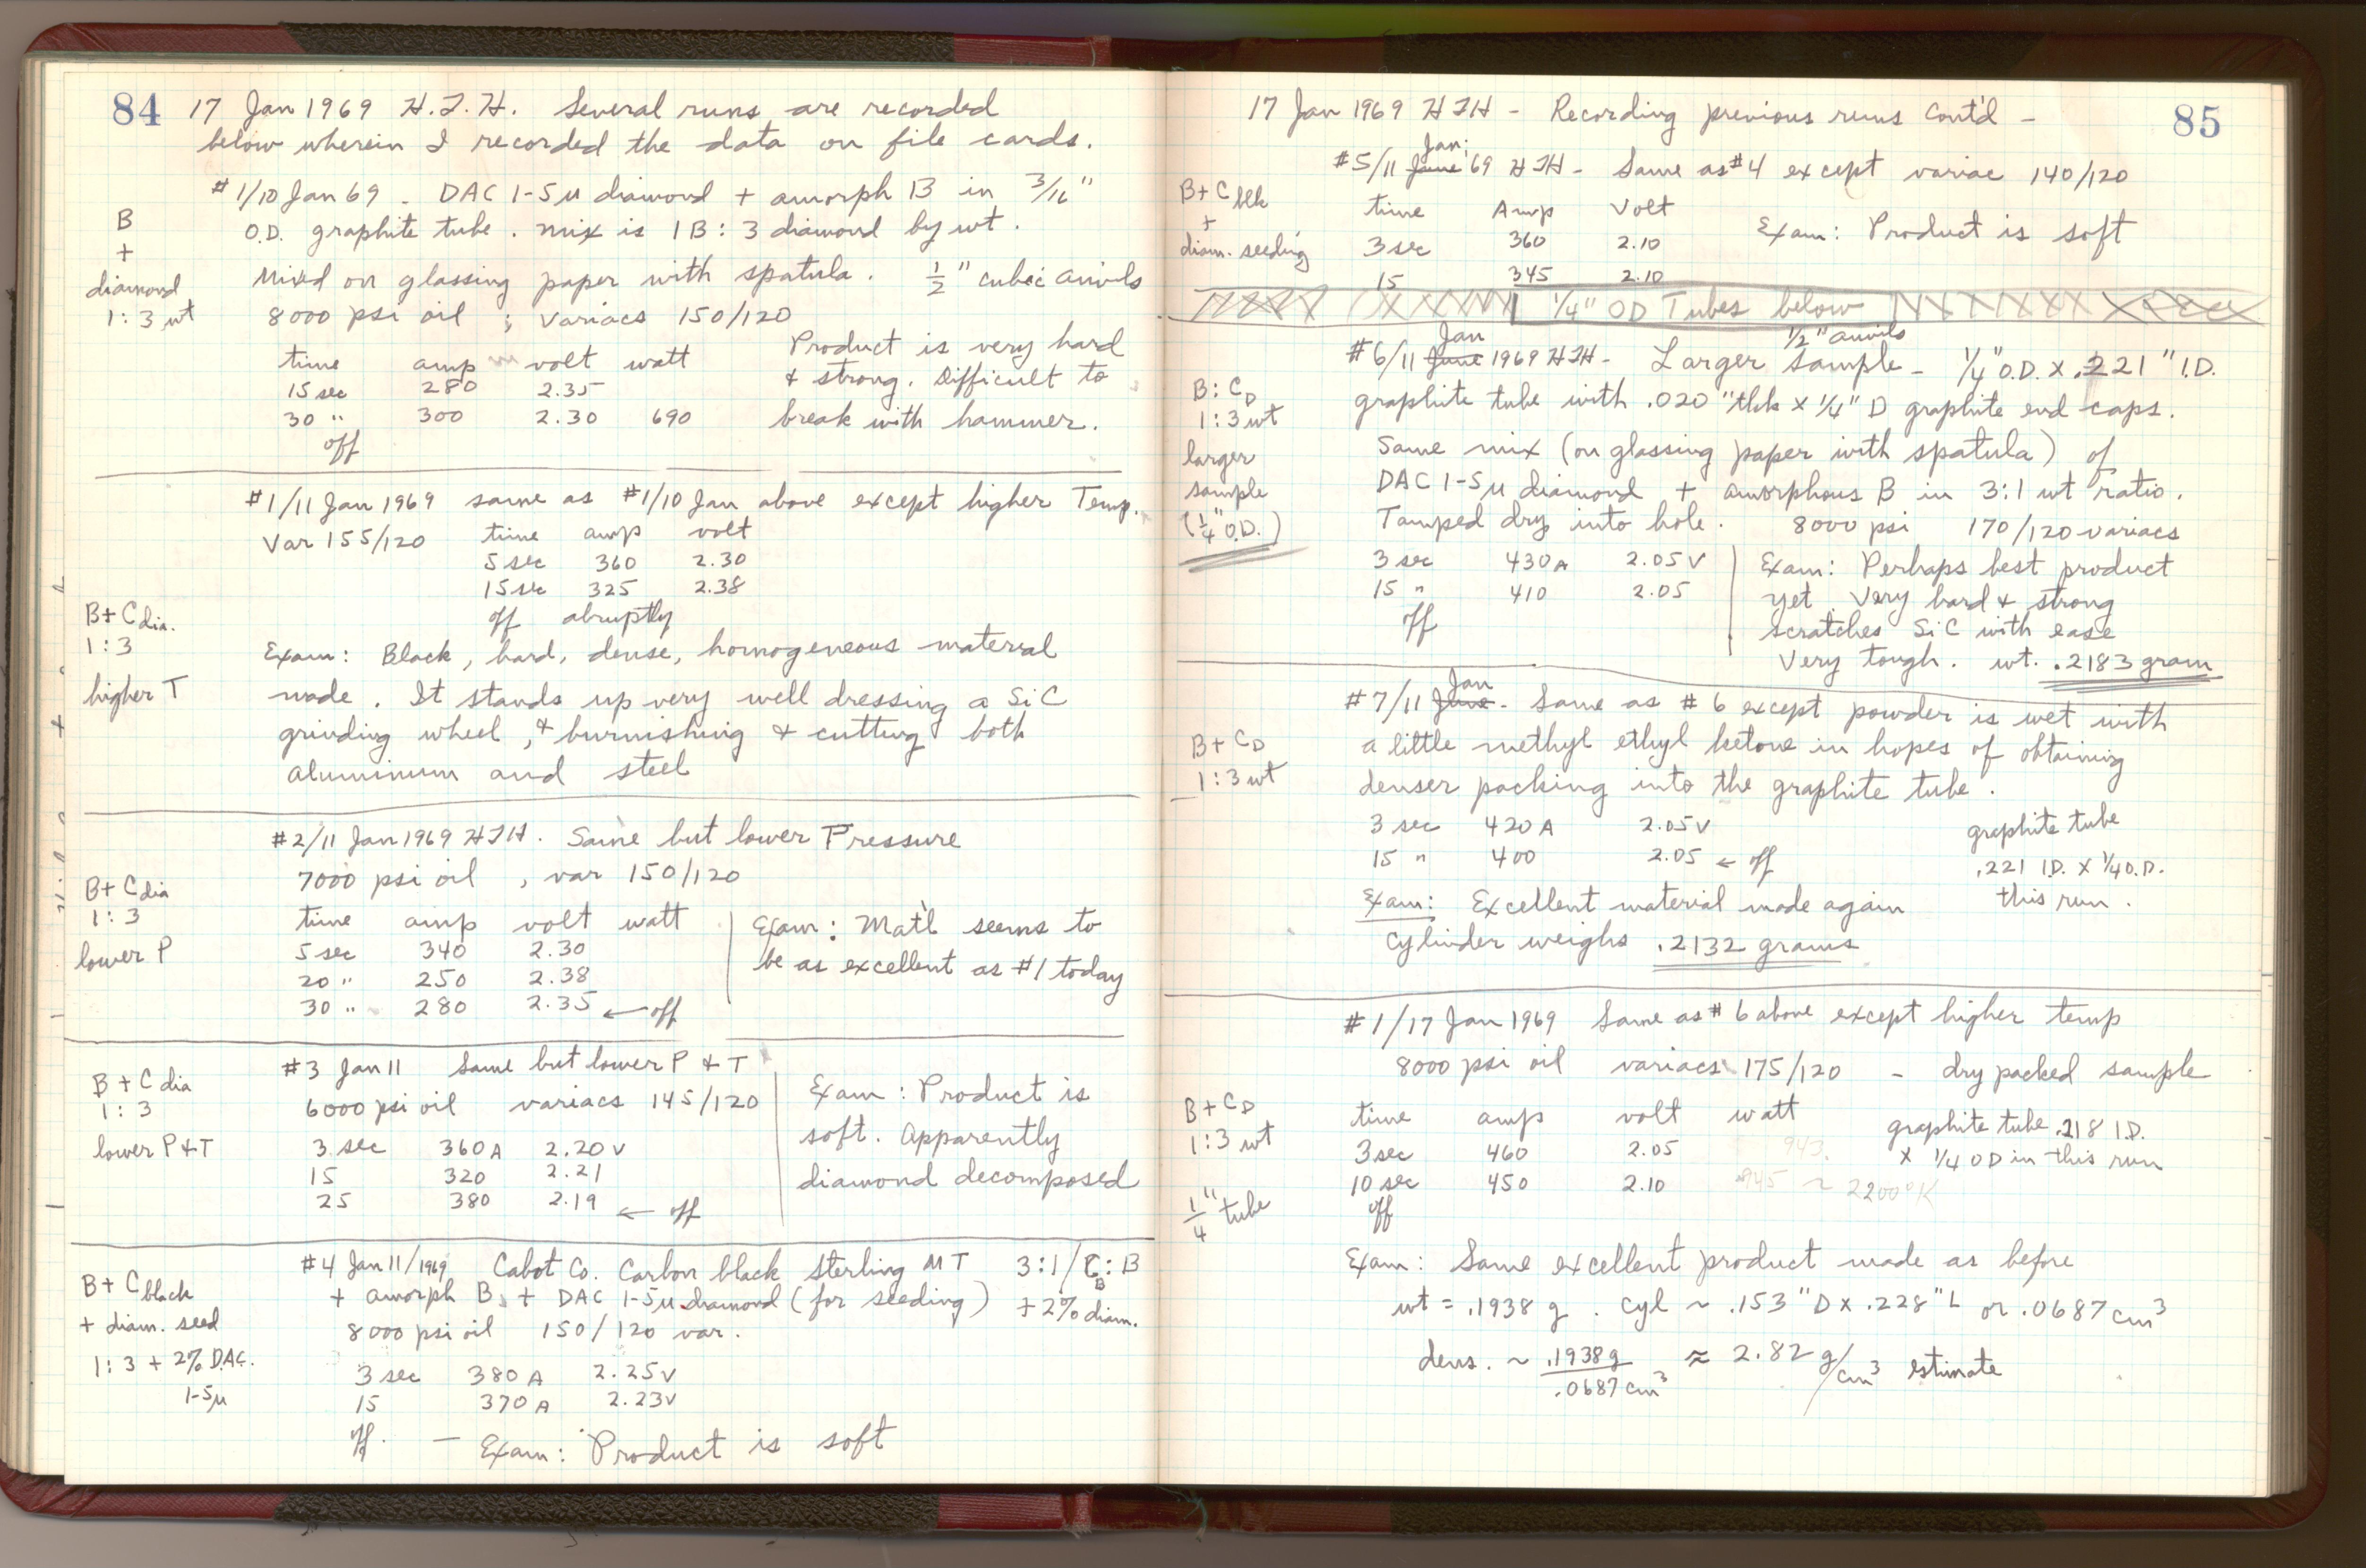 84 17 Jan 1969 H.T.H. Several runs are recorded
below wherein I recorded the data on file cards.
#1/10 Jan 69 - DAC 1-5μ diamond + amorph B in 3/16"
O.D. graphite tube. mix is 1B : 3 diamond by wt.
B
+
diamond
1:3 wt
Mixed on glassing paper with spatula. 1/2" cubic anvils
8000 psi oil ; variacs 150/120
time amp volt watt
15 sec 280 2.35
30 " 300 2.30 690
off
Product is very hard
& strong. Difficult to
break with hammer.
#1/11 Jan 1969 same as #1/10 Jan above except higher Temp.
Var 155/120 time amp volt
5 sec 360 2.30
15 sec 325 2.38
off abruptly
B + C dia.
1:3
higher T
Exam: Black, hard, dense, homogeneous material
made. It stands up very well dressing a SiC
grinding wheel, & burnishing & cutting both
aluminum and steel
#2/11 Jan 1969 HTH. Same but lower Pressure
7000 psi oil , var 150/120
B + C dia
1:3
lower P
time amp volt watt
5 sec 340 2.30
20 " 250 2.38
30 " 280 2.35 ← off
Exam: Mat'l seems to
be as excellent as #1 today
#3 Jan 11 Same but lower P & T
6000 psi oil variacs 145/120
B + C dia
1:3
lower P & T
3 sec 360A 2.20V
15 320 2.21
25 380 2.19 ← off
Exam: Product is
soft. Apparently
diamond decomposed
#4 Jan 11/1969 Cabot Co. Carbon black Sterling MT 3:1/C:B
+ amorph B + DAC 1-5μ diamond (for seeding) + 2% diam.
8000 psi oil 150/120 var.
B + C black
+ diam. seed
1:3 + 2% DAC.
1-5μ
3 sec 380A 2.25V
15 370A 2.23V
off. — Exam: Product is soft
17 Jan 1969 HTH - Recording previous runs Cont'd - 85
Jan.
#5/11 June '69 HTH - Same as #4 except variac 140/120
B + C blk
+
diam. seeding
time Amp Volt
3 sec 360 2.10
15 345 2.10
Exam: Product is soft
1/4" OD Tubes below
Jan 1/2" anvils
#6/11 June 1969 HTH - Larger Sample - 1/4" O.D. x .221" I.D.
graphite tube with .020" thk x 1/4" D graphite end caps.
B : C D
1:3 wt
larger
sample
(1/4" O.D.)
Same mix (on glassing paper with spatula) of
DAC 1-5μ diamond + amorphous B in 3:1 wt ratio.
Tamped dry into hole. 8000 psi 170/120 variacs
3 sec 430A 2.05V
15 " 410 2.05
off
Exam: Perhaps best product
yet. Very hard & strong
scratches SiC with ease
Very tough. wt. .2183 gram
Jan
#7/11 June - Same as #6 except powder is wet with
a little methyl ethyl ketone in hopes of obtaining
denser packing into the graphite tube.
B + C D
1:3 wt
3 sec 420A 2.05V
15 " 400 2.05 ← off
graphite tube
.221 I.D. x 1/4 O.D.
this run.
Exam: Excellent material made again
Cylinder weighs .2132 grams
#1/17 Jan 1969 Same as #6 above except higher temp
8000 psi oil variacs 175/120 - dry packed sample
B + C D
1:3 wt
1/4" tube
time amp volt watt
3 sec 460 2.05 943.
10 sec 450 2.10 945 ~ 2200°K
off
graphite tube .218 I.D.
x 1/4 OD in this run
Exam: Same excellent product made as before
wt = .1938 g. Cyl ~ .153" D x .228" L or .0687 cm³
dens. ~ .1938g / .0687 cm³ ≈ 2.82 g/cm³ estimate